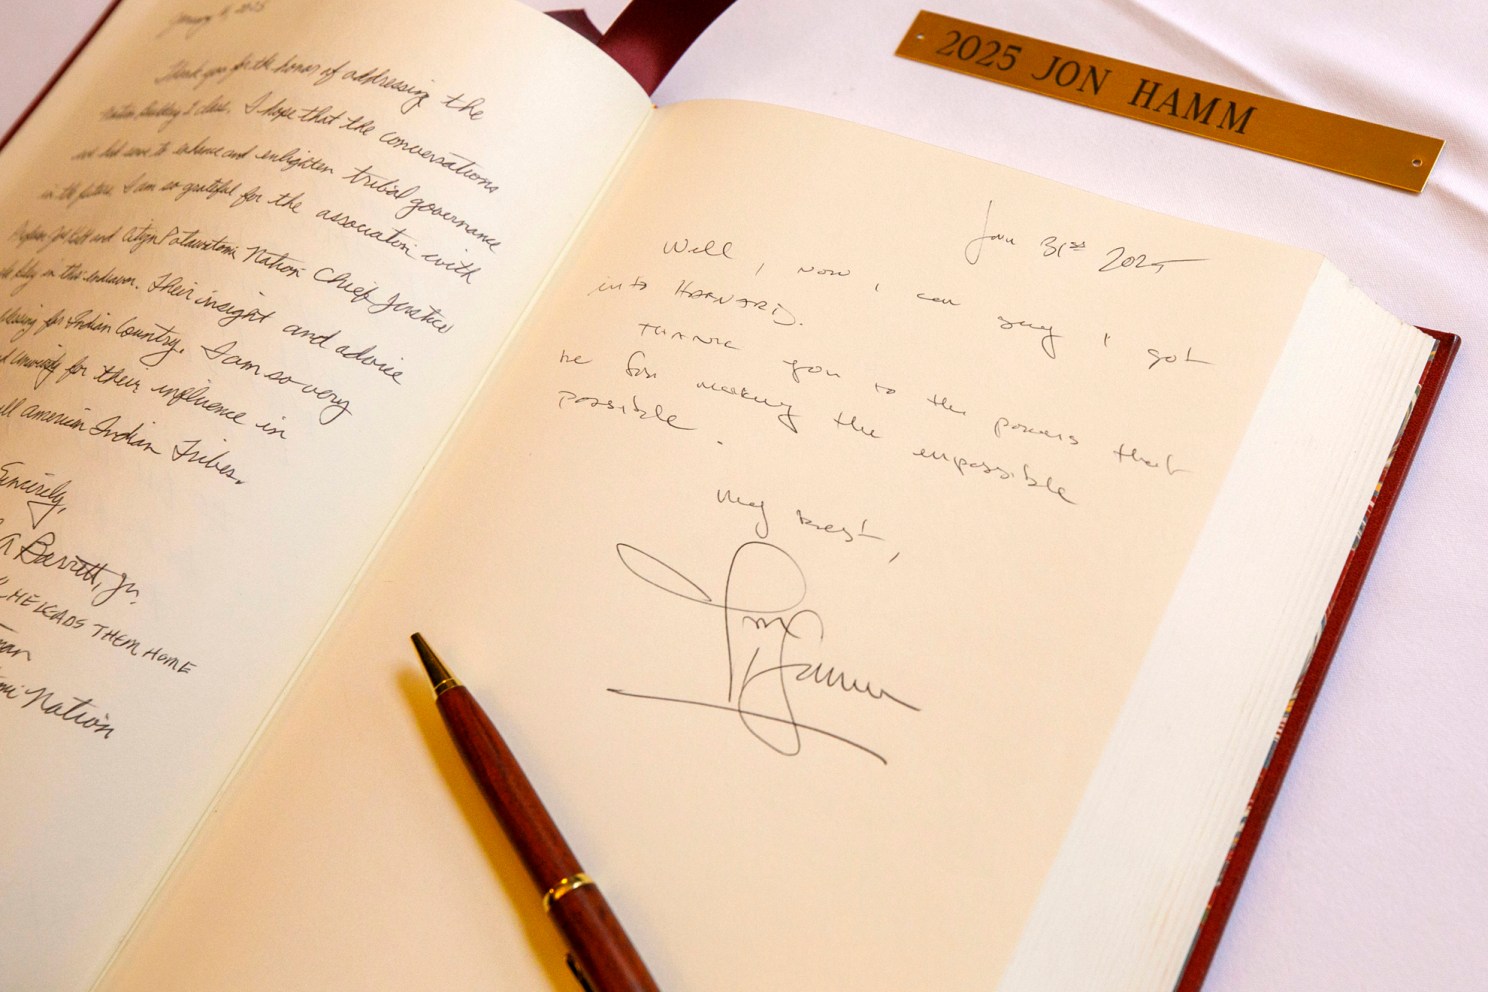 January 2025
Thank you for the honor of addressing the
Nation Building I class. I hope that the conversations
we had serve to enhance and enlighten tribal governance
in the future. I am so grateful for the association with
Professor and Citizen Potawatomi Nation Chief Justice
in this endeavor. Their insight and advice
for Indian Country. I am so very
University for their influence in
all american Indian Tribes.
Sincerely,
A Barrett, Jr.
"HE LEADS THEM HOME
Nation
2025 JON HAMM
Jan 31st 2025
Well, now I can say I got
into HARVARD.
THANK you to the powers that
be for making the impossible
possible.
My best,
Jon Hamm